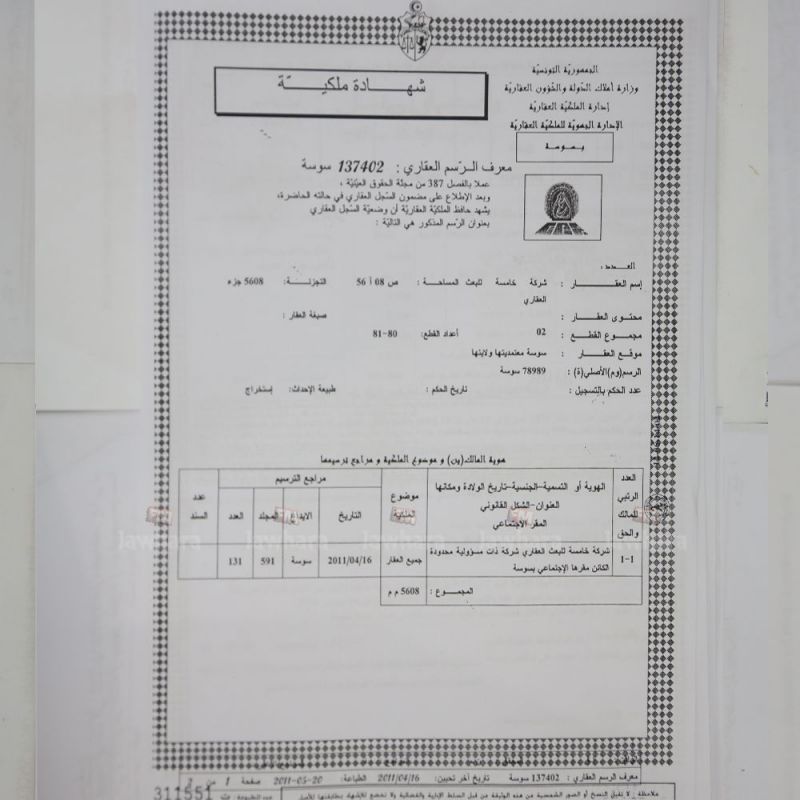 الجمهورية التونسية
وزارة أملاك الدولة والشؤون العقارية
إدارة الملكية العقارية
الإدارة الجهوية للملكية العقارية
بسوسة
شهادة ملكيّة
معرف الرّسم العقاري : 137402 سوسة
عملا بالفصل 387 من مجلة الحقوق العينيّة ،
وبعد الإطلاع على مضمون السّجل العقاري في حالته الحاضرة،
يشهد حافظ الملكيّة العقاريّة أن وضعيّة السّجل العقاري
بعنوان الرّسم المذكور هي التالية :
العدد:
إسم العقار : شركة خامسة للبعث العقاري المساحة : 56 أ 08 ص التجزئة: 5608 جزء
محتوى العقار : صبغة العقار :
مجموع القطع : 02 أعداد القطع: 80-81
موقع العقار : سوسة معتمديتها ولايتها
الرسم(وم)الأصلي(ة) : 78989 سوسة
عدد الحكم بالتسجيل : تاريخ الحكم : طبيعة الإحداث: إستخراج
هوية المالك(ين) و موضوع الملكية و مراجع ترسيمها
العدد الرتبي للمالك والحق
الهوية أو التسمية-الجنسية-تاريخ الولادة ومكانها
العنوان-الشكل القانوني
المقر الاجتماعي
موضوع الملكية
مراجع الترسيم
التاريخ الايداع المجلد العدد
عدد السند
1-1 شركة خامسة للبعث العقاري شركة ذات مسؤولية محدودة جميع العقار 2011/04/16 سوسة 591 131
الكائن مقرها الإجتماعي بسوسة
المجموع : 5608 م م
Jawhara Jawhara Jawhara Jawhara
معرف الرسم العقاري : 137402 سوسة تاريخ آخر تحيين: 2011/04/16 الطباعة: 2011-05-20 صفحة 1 من 2
311551